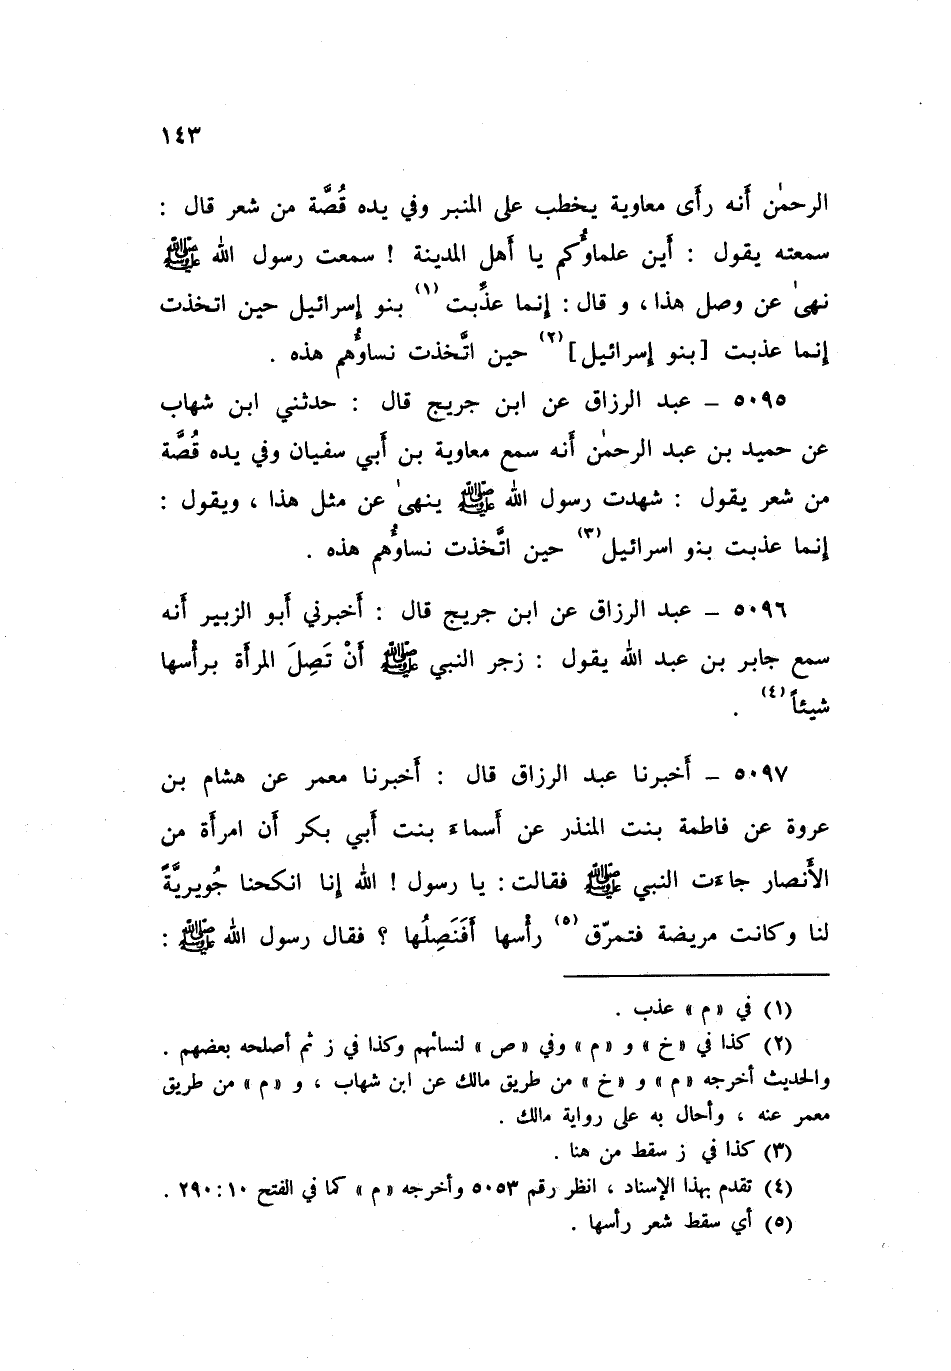 ١٤٣
الرحمٰن أَنه رأَى معاوية يخطب على المنبر وفي يده قُصَّة من شعر قال :
سمعته يقول : أَين علماؤُكم يا أَهل المدينة ! سمعت رسول الله ﷺ
نهىٰ عن وصل هذا ، و قال : إِنما عذِّبت (١) بنو إسرائيل حين اتخذت
إِنما عذبت [بنو إسرائيل] (٢) حين اتَّخذت نساؤُهم هذه .
٥٠٩٥ – عبد الرزاق عن ابن جريج قال : حدثني ابن شهاب
عن حميد بن عبد الرحمٰن أَنه سمع معاوية بن أَبي سفيان وفي يده قُصَّة
من شعر يقول : شهدت رسول الله ﷺ ينهىٰ عن مثل هذا ، ويقول :
إِنما عذبت بنو اسرائيل (٣) حين اتَّخذت نساؤُهم هذه .
٥٠٩٦ – عبد الرزاق عن ابن جريج قال : أَخبرني أَبو الزبير أَنه
سمع جابر بن عبد الله يقول : زجر النبي ﷺ أَنْ تَصِلَ المرأَة برأْسها
شيئاً (٤) .
٥٠٩٧ – أَخبرنا عبد الرزاق قال : أَخبرنا معمر عن هشام بن
عروة عن فاطمة بنت المنذر عن أَسماء بنت أَبي بكر أَن امرأَة من
الأَنصار جاءت النبي ﷺ فقالت : يا رسول ! الله إِنا انكحنا جُويريَّةً
لنا وكانت مريضة فتمرّق (٥) رأْسها أَفَنَصِلُها ؟ فقال رسول الله ﷺ :
(١) في «م» عذب .
(٢) كذا في «خ» و «م» وفي «ص» لنسائهم وكذا في ز ثم أصلحه بعضهم .
والحديث أخرجه «م» و «خ» من طريق مالك عن ابن شهاب ، و «م» من طريق
معمر عنه ، وأحال به على رواية مالك .
(٣) كذا في ز سقط من هنا .
(٤) تقدم بهذا الإسناد ، انظر رقم ٥٠٥٣ وأخرجه «م» كما في الفتح ١٠ : ٢٩٠ .
(٥) أي سقط شعر رأسها .